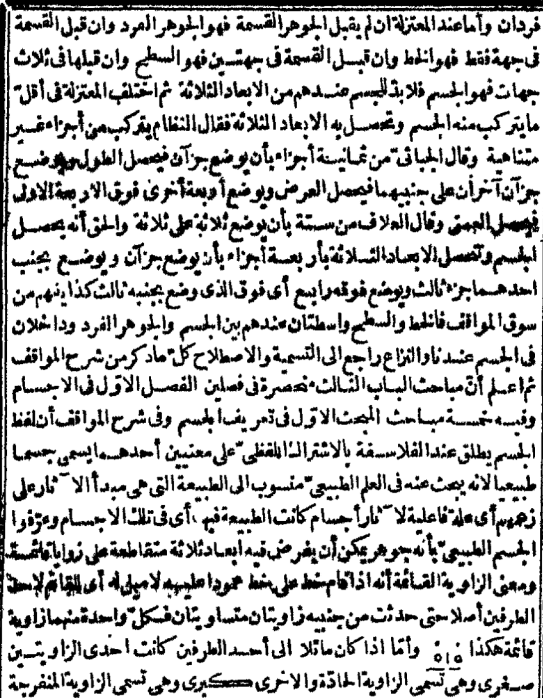 فردان وأما عند المعتزلة ان لم يقبل الجوهر القسمة فهو الجوهر الفرد وان قبل القسمة
فى جهة فقط فهو الخط وان قبل القسمة فى جهتين فهو السطح وان قبلها فى ثلاث
جهات فهو الجسم فلا بد للجسم عندهم من الابعاد الثلاثة ثم اختلف المعتزلة فى أقل
ما يتركب منه الجسم وتحصل به الابعاد الثلاثة فقال النظام يتركب من أجزاء غير
متناهية وقال الجبائى من ثمانية أجزاء بأن يوضع جزآن فيحصل الطول ويوضع
جزآن آخران على جنبيهما فيحصل العرض ويوضع أربعة أخرى فوق الاربعة الاول
فيحصل العمق وقال العلاف من ستة بأن يوضع ثلاثة على ثلاثة والحق أنه يحصل
الجسم وتحصل الابعاد الثلاثة بأربعة أجزاء بأن يوضع جزآن ويوضع بجنب
احدهما جزء ثالث ويوضع فوقه رابع أى فوق الذى وضع بجنبه ثالث كذا يفهم من
سوق المواقف فالخط والسطح واسطتان عندهم بين الجسم والجوهر الفرد وداخلان
فى الجسم عندنا والنزاع راجع الى التسمية والاصطلاح كل ما ذكر من شرح المواقف
ثم اعلم أن مباحث الباب الثالث منحصرة فى فصلين الفصل الاول فى الاجسام
وفيه خمسة مباحث المبحث الاول فى تعريف الجسم وفى شرح المواقف أن لفظ
الجسم يطلق عند الفلاسفة بالاشتراك اللفظى على معنيين أحدهما يسمى جسما
طبيعيا لانه يبحث عنه فى العلم الطبيعى منسوب الى الطبيعة التى هى مبدأ الآثار على
زعمهم أى علة فاعلية لآثار أجسام كانت الطبيعة فيها أى فى تلك الاجسام وعرّفوا
الجسم الطبيعى بأنه جوهر يمكن أن يفرض فيه أبعاد ثلاثة متقاطعة على زوايا قائمة
ومعنى الزاوية القائمة أنه اذا قام خط على خط عمودا عليه لا ميل له أى للقائم لاحد
الطرفين أصلا حتى حدثت من جنبيه زاويتان متساويتان فكل واحدة منهما زاوية
قائمة هكذا وأما اذا كان مائلا الى أحد الطرفين كانت احدى الزاويتين
صغرى وهى تسمى الزاوية الحادة والاخرى كبرى وهى تسمى الزاوية المنفرجة